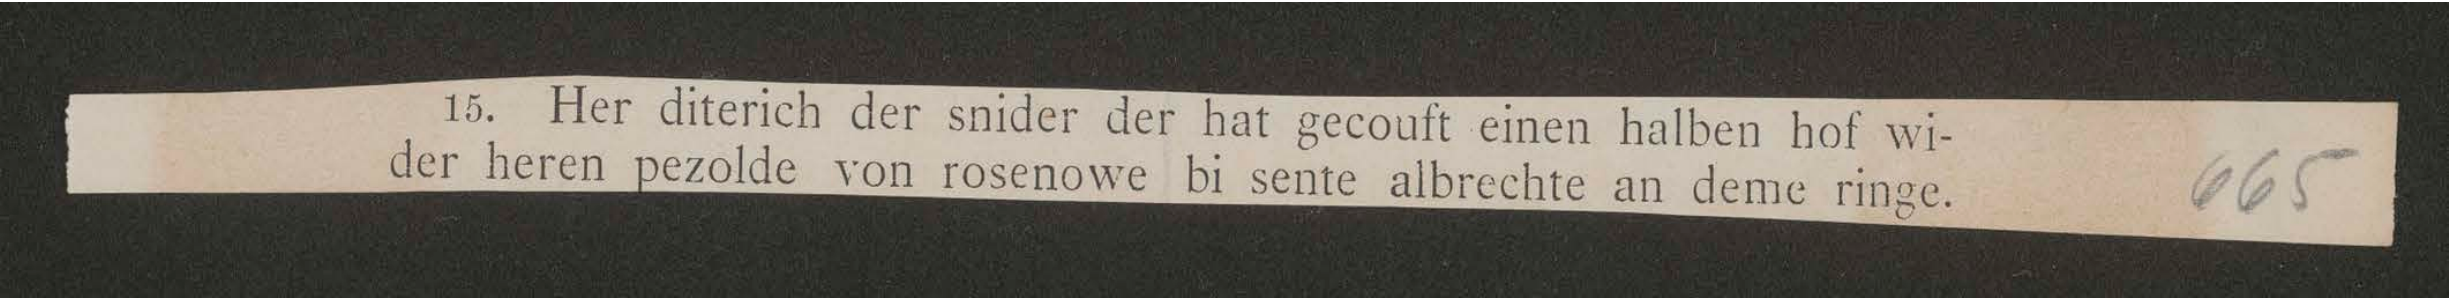 15. Her diterich der snider der hat gecouft einen halben hof wi-
der heren pezolde von rosenowe bi sente albrechte an deme ringe.
665